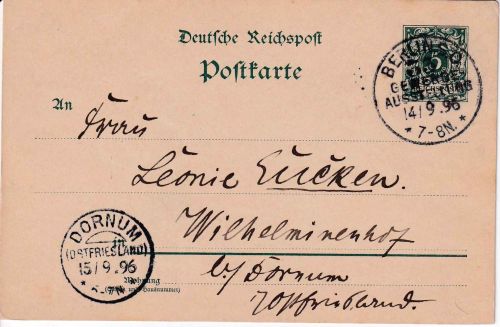 Deutsche Reichspost
Postkarte
BERLIN S.O.
GEWERBE-
AUSSTELLUNG
14/9.96
* 7-8N. *
5
An
Frau
Leonie Eucken.
Wilhelminenhof
b/ Dornum
Ostfriesland.
DORNUM
(OSTFRIESLAND)
15/9.96
Wohnung
(Straße und Hausnummer)